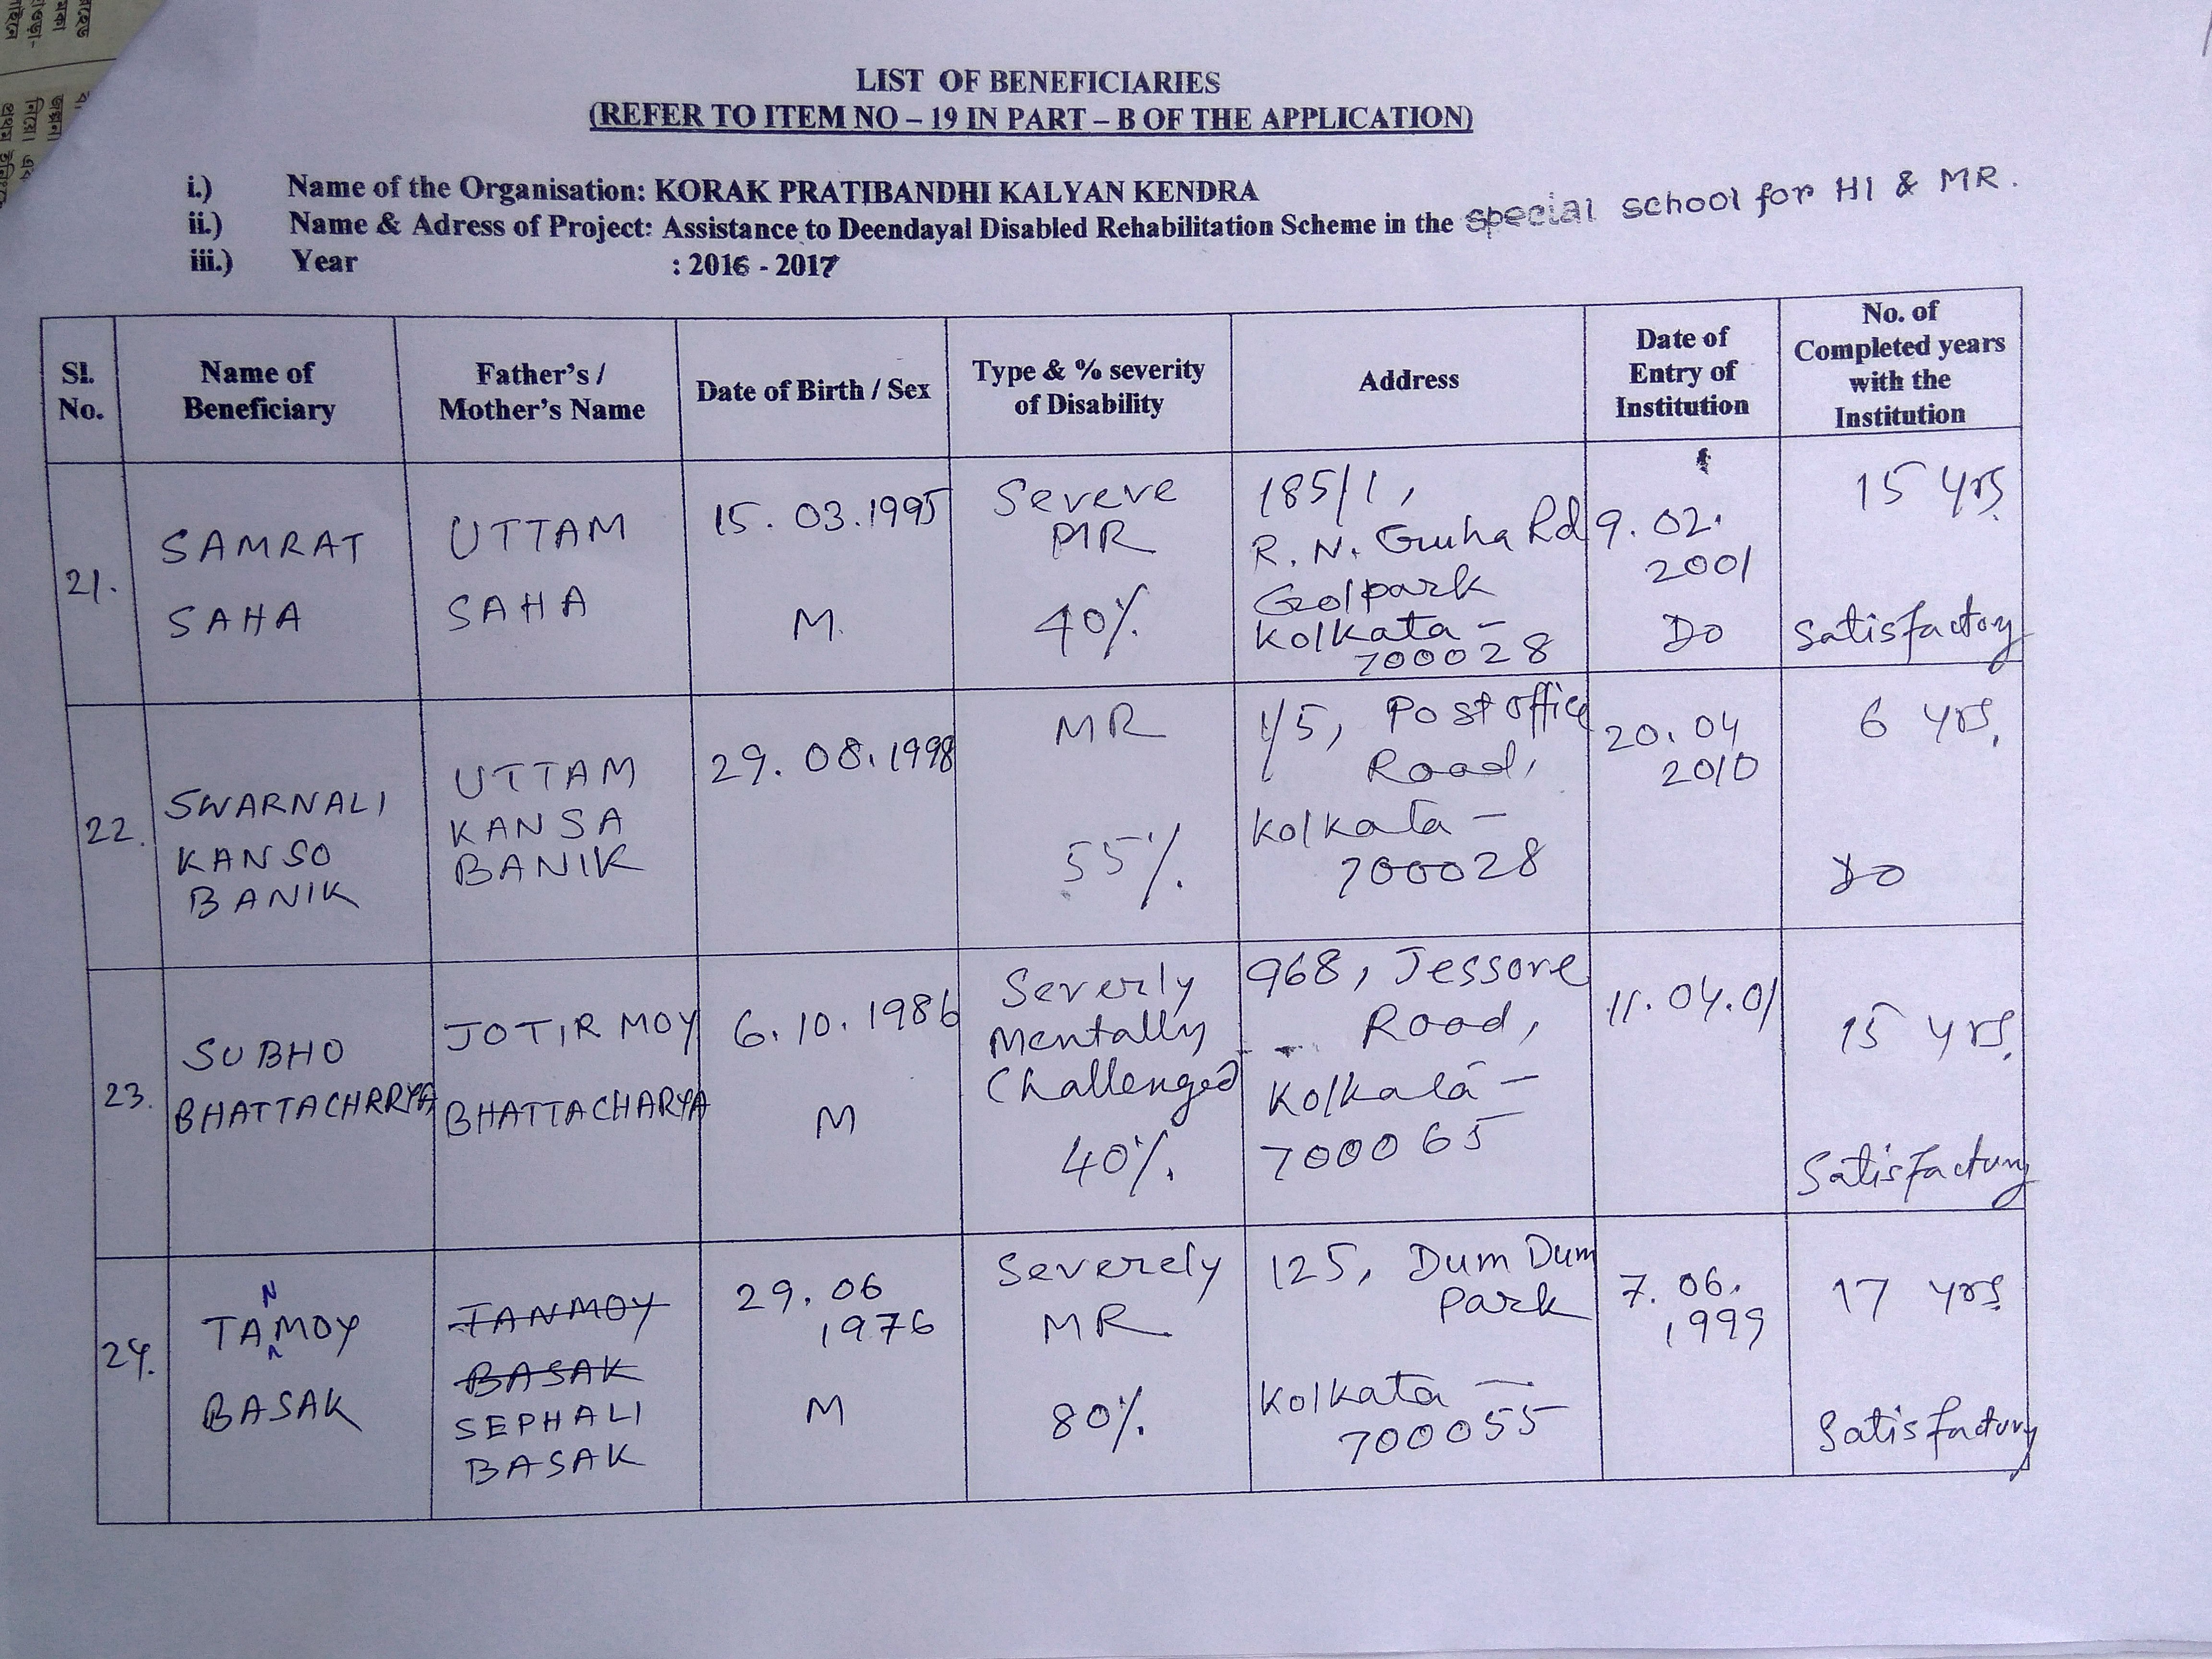 LIST OF BENEFICIARIES
(REFER TO ITEM NO – 19 IN PART – B OF THE APPLICATION)
i.) Name of the Organisation: KORAK PRATIBANDHI KALYAN KENDRA
ii.) Name & Adress of Project: Assistance to Deendayal Disabled Rehabilitation Scheme in the special school for HI & MR.
iii.) Year : 2016 - 2017
Sl. No.
Name of Beneficiary
Father's / Mother's Name
Date of Birth / Sex
Type & % severity of Disability
Address
Date of Entry of Institution
No. of Completed years with the Institution
21.
SAMRAT
SAHA
UTTAM
SAHA
15. 03. 1995
M.
Severe
MR
40%.
185/1,
R. N. Guha Rd
Golpark
Kolkata –
700028
9. 02.
2001
Do
15 yrs.
Satisfactory
22.
SWARNALI
KANSO
BANIK
UTTAM
KANSA
BANIK
29. 08. 1998
MR
55%.
1/5, Post office
Road,
Kolkata –
700028
20. 04
2010
6 yrs.
Do
23.
SUBHO
BHATTACHRRYA
JOTIR MOY
BHATTACHARYA
6. 10. 1986
M
Severly
Mentally
Challenged
40%.
968, Jessore
Road,
Kolkata –
700065
11. 04. 01
15 yrs.
Satisfactory
24.
TANMOY
BASAK
TANMOY
BASAK
SEPHALI
BASAK
29. 06
1976
M
Severely
MR
80%.
125, Dum Dum
Park
Kolkata –
700055
7. 06.
1999
17 yrs.
Satisfactory